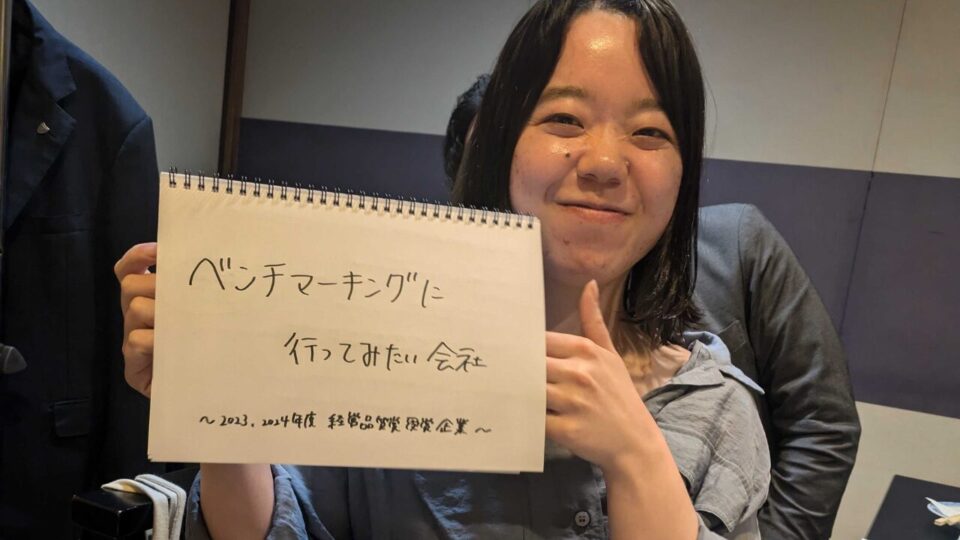 ベンチマーキングに
行ってみたい会社
～2023、2024年度 経営品質賞受賞企業～